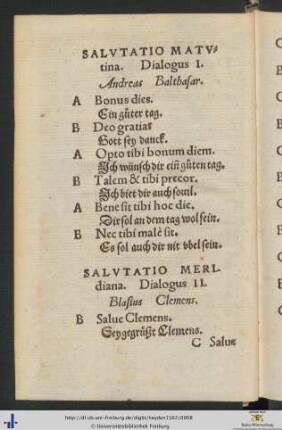 SALVTATIO MATV-
tina. Dialogus I.
Andreas Balthasar.
A Bonus dies.
Ein güter tag.
B Deo gratias
Gott sey danck.
A Opto tibi bonum diem.
Jch wünsch dir ein güten tag.
B Talem & tibi precor.
Jch biet dir auch souil.
A Bene sit tibi hoc die.
Dir sol an dem tag wol sein.
B Nec tibi malè sit.
Es sol auch dir nit vbel sein.
SALVTATIO MERI-
diana. Dialogus II.
Blasius Clemens.
B Salue Clemens.
Sey gegrüßt Clemens.
C Salue
http://dl.ub.uni-freiburg.de/diglit/heyden1562/0008
© Universitätsbibliothek Freiburg
Baden-Württemberg